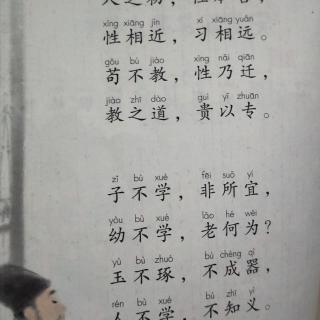 xìng xiāng jìn xí xiāng yuǎn
性相近，习相远。
gǒu bú jiào xìng nǎi qiān
苟不教，性乃迁，
jiào zhī dào guì yǐ zhuān
教之道，贵以专。
zǐ bù xué fēi suǒ yí
子不学，非所宜，
yòu bù xué lǎo hé wéi
幼不学，老何为？
yù bù zhuó bù chéng qì
玉不琢，不成器，
rén bù xué bù zhī yì
人不学，不知义。